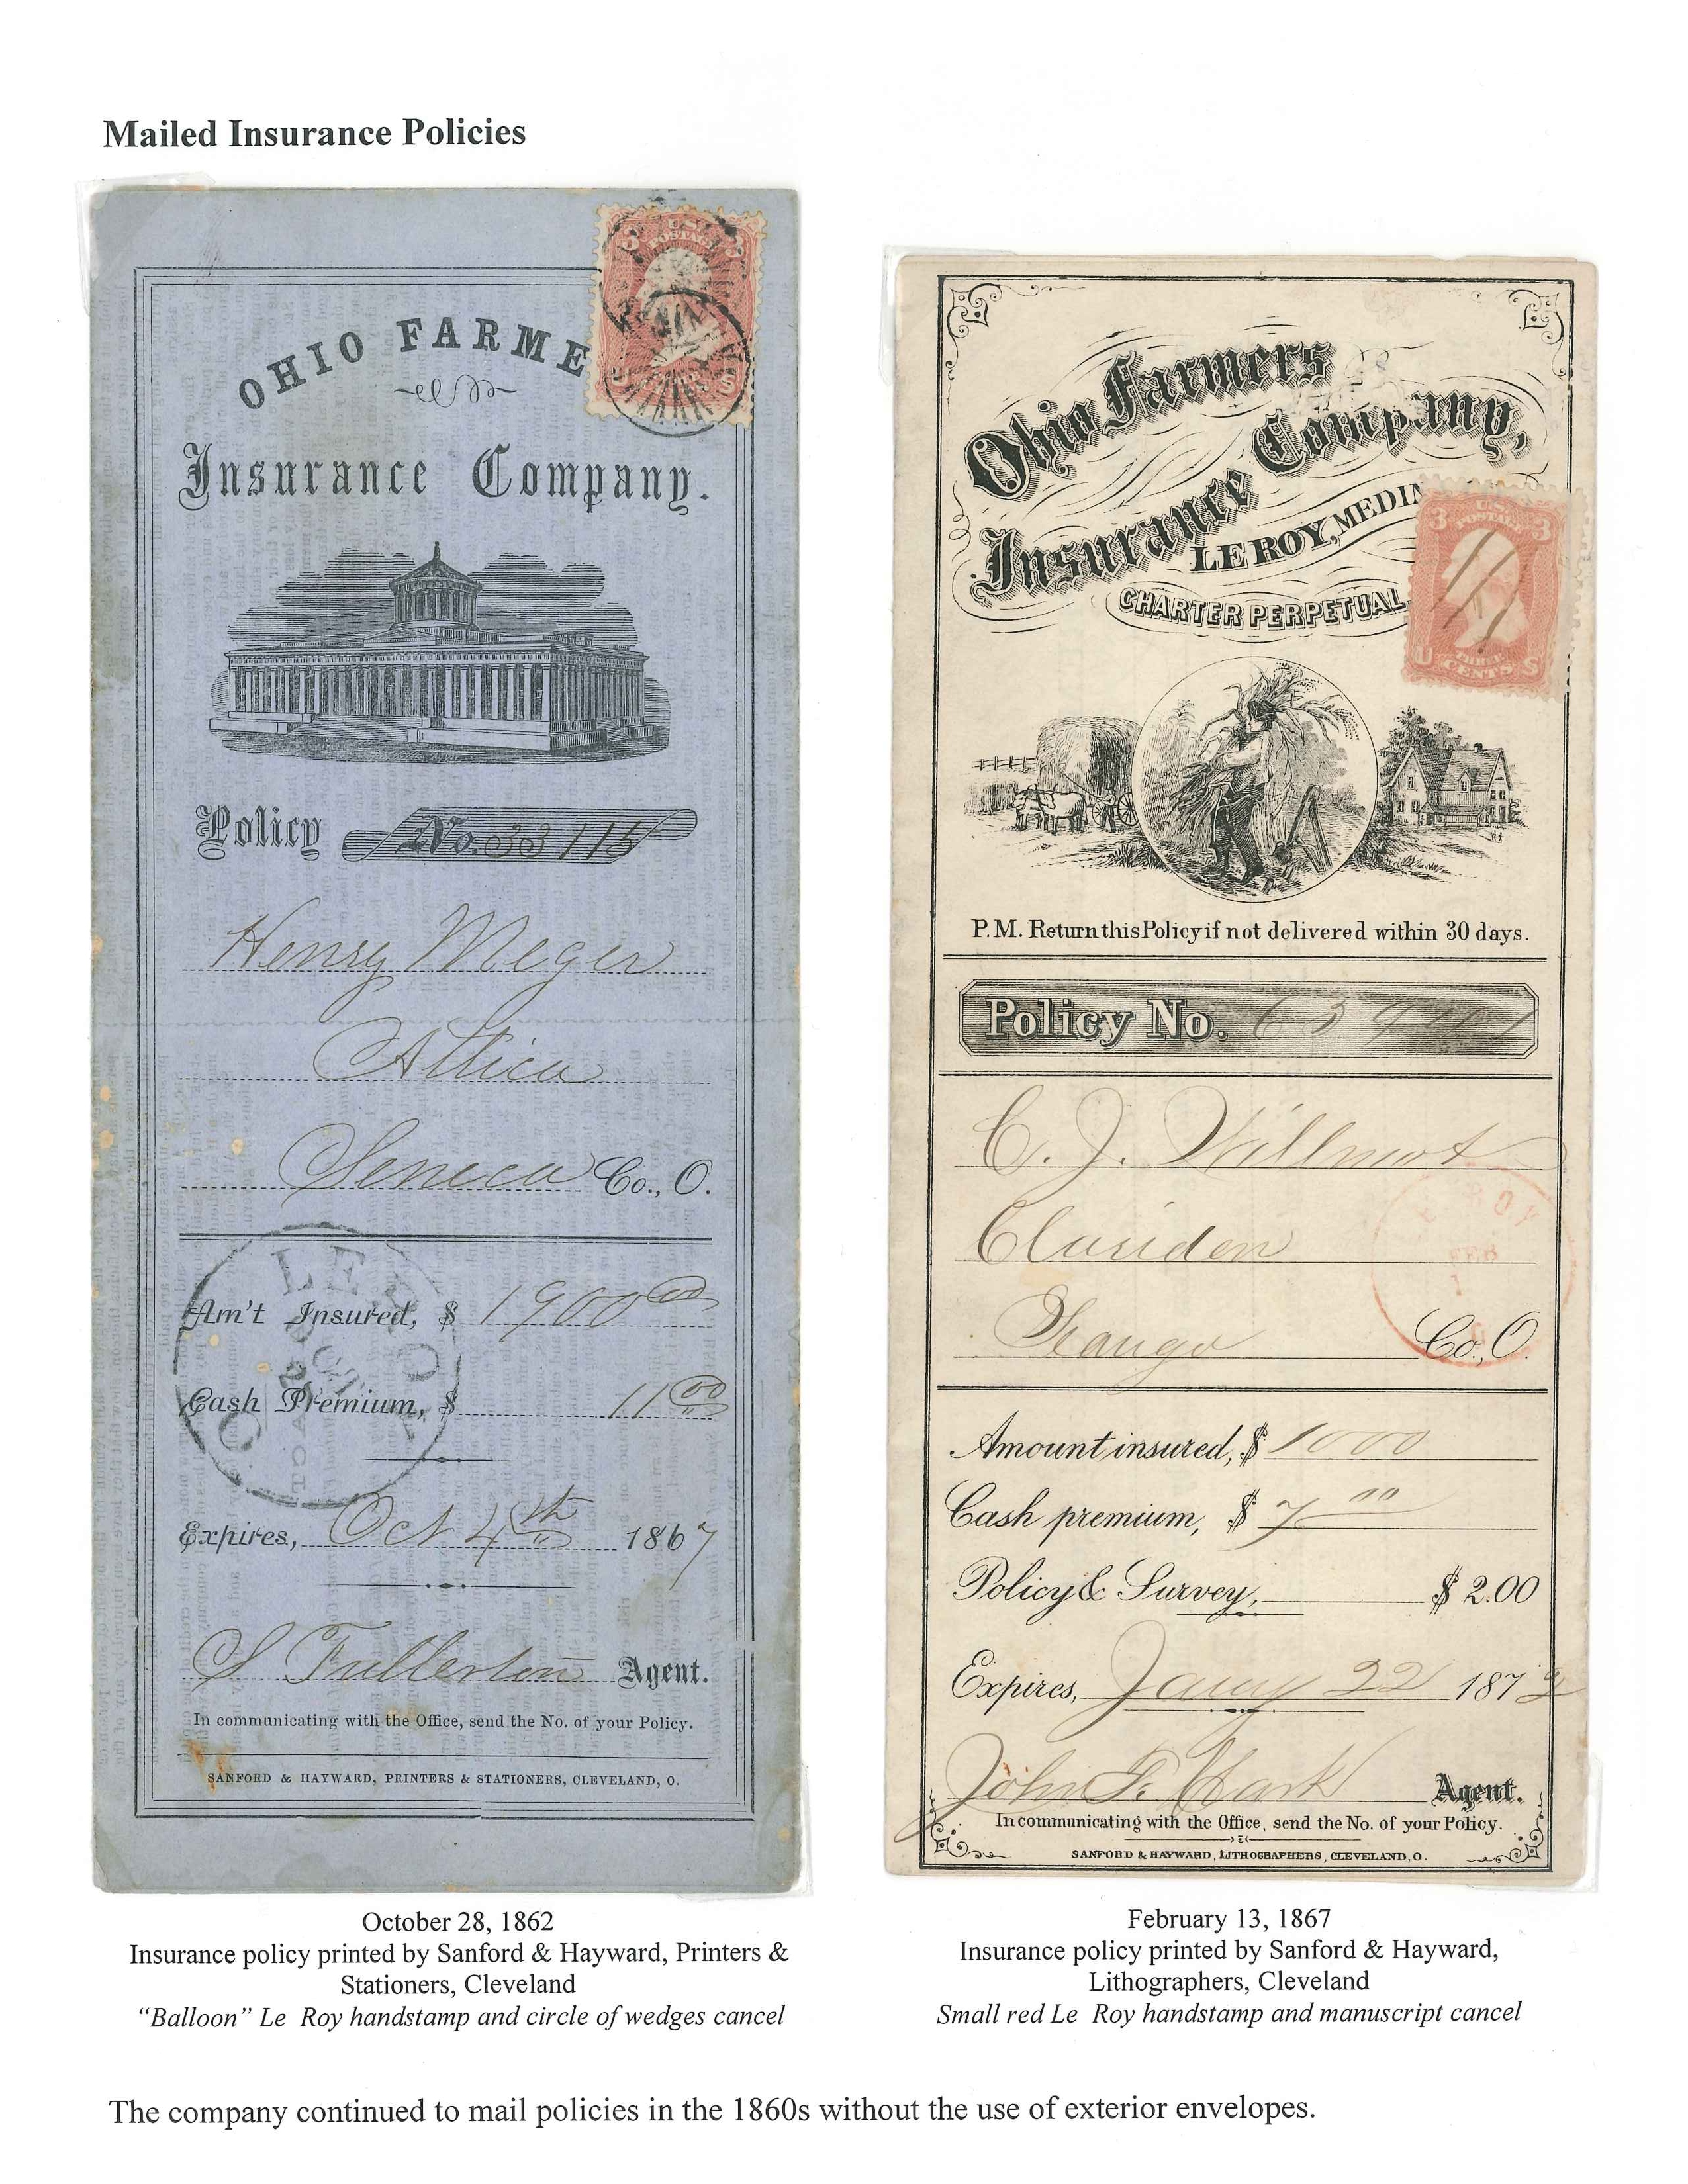 Mailed Insurance Policies
OHIO FARME
Insurance Company.
Policy No. 33115
Henry Meyer
Attica
Seneca Co., O.
LE ROY
O
OCT
Am't Insured, $ 1900 00
Cash Premium, $ 11 00
Expires, Oct 4th 1867
S Fullerton Agent.
In communicating with the Office, send the No. of your Policy.
SANFORD & HAYWARD, PRINTERS & STATIONERS, CLEVELAND, O.
October 28, 1862
Insurance policy printed by Sanford & Hayward, Printers &
Stationers, Cleveland
"Balloon" Le Roy handstamp and circle of wedges cancel
U.S.
POSTAGE
Ohio Farmers
Insurance Company,
LE ROY, MEDIN
CHARTER PERPETUAL
3 U.S. 3
POSTAGE
U THREE S
CENTS
P.M. Return this Policy if not delivered within 30 days.
Policy No.
C. J. Willmot
Clariden
Geauga Co., O.
ROY
FEB
Amount insured, $ 1000
Cash premium, $ 7 00
Policy & Survey, $ 2.00
Expires, Jany 22 187
John F. Agent.
In communicating with the Office, send the No. of your Policy.
SANFORD & HAYWARD, LITHOGRAPHERS, CLEVELAND, O.
February 13, 1867
Insurance policy printed by Sanford & Hayward,
Lithographers, Cleveland
Small red Le Roy handstamp and manuscript cancel
The company continued to mail policies in the 1860s without the use of exterior envelopes.